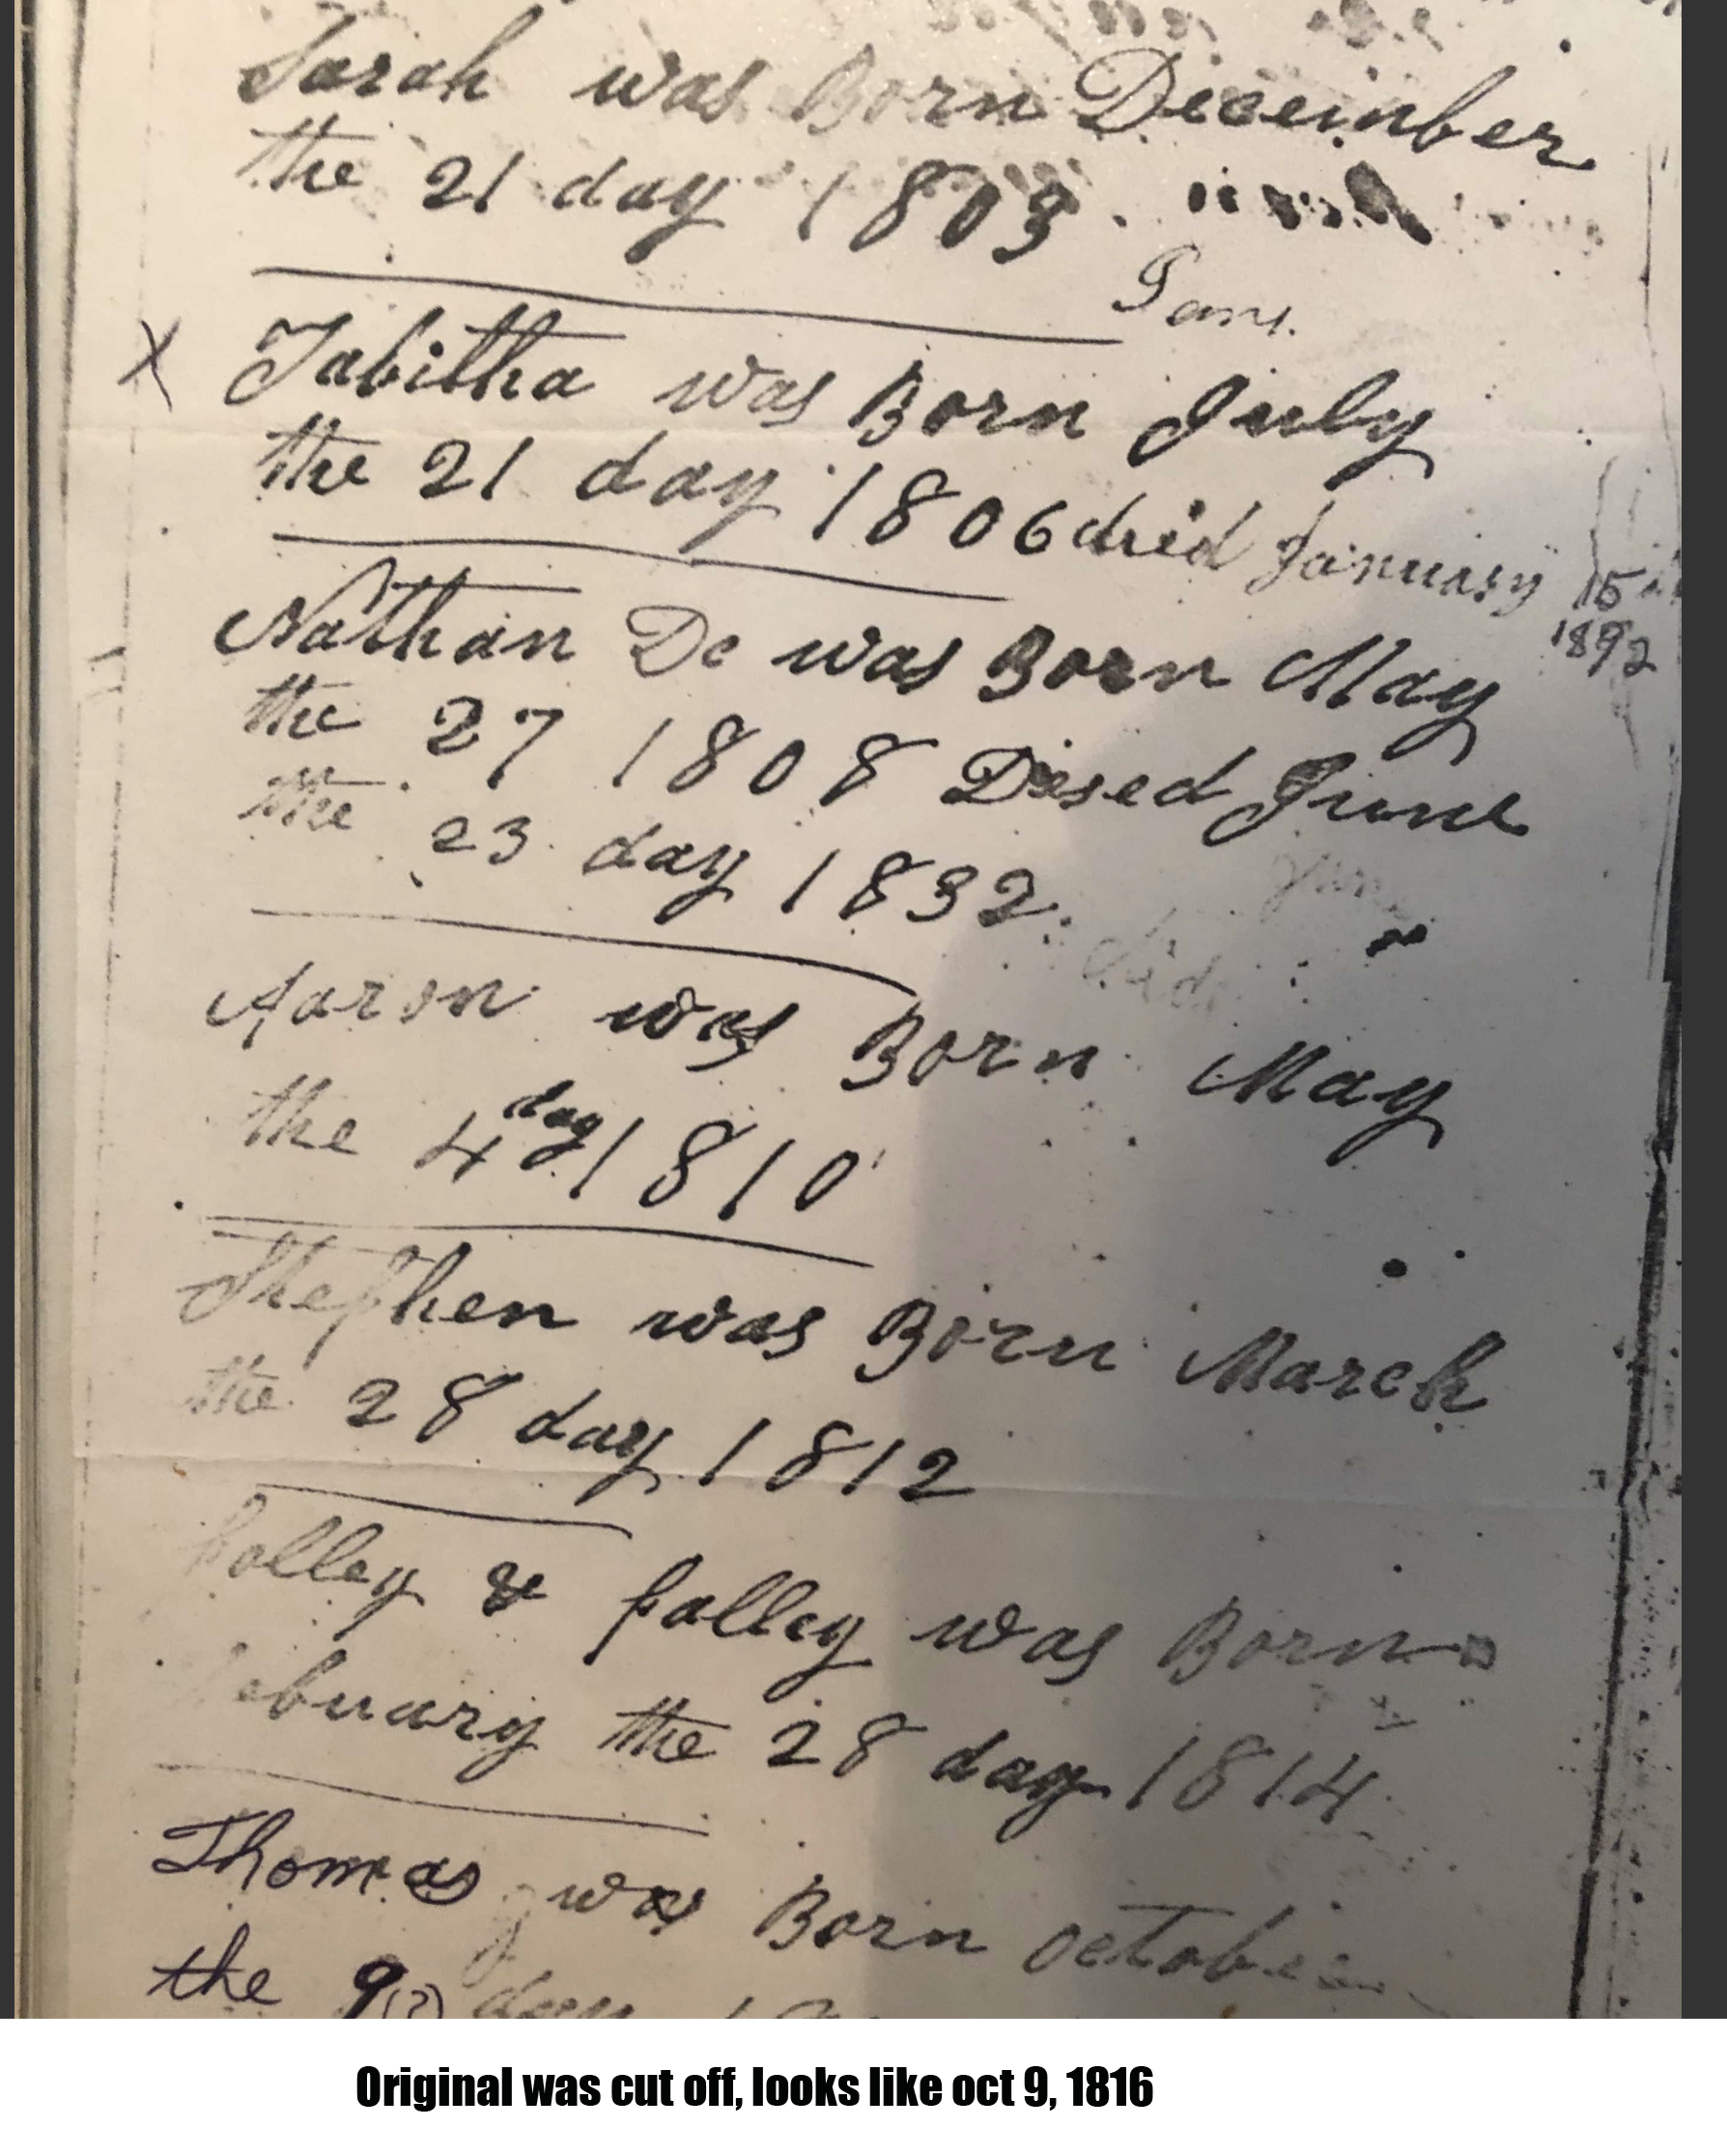 Sarah was Born Deceinber
the 21 day 1803.
Jany.
X Tabitha was Born July
the 21 day 1806 died January 15
1892
Nathan De was Born May
the 27 1808 Diesed June
the 23 day 1832.
June
died
Aaron was Born May
the 4 day 1810
Stephen was Born March
the 28 day 1812
polley & salley was Born
Febuary the 28 day 1814
Thomas was Born October
the 9(?) day
Original was cut off, looks like oct 9, 1816